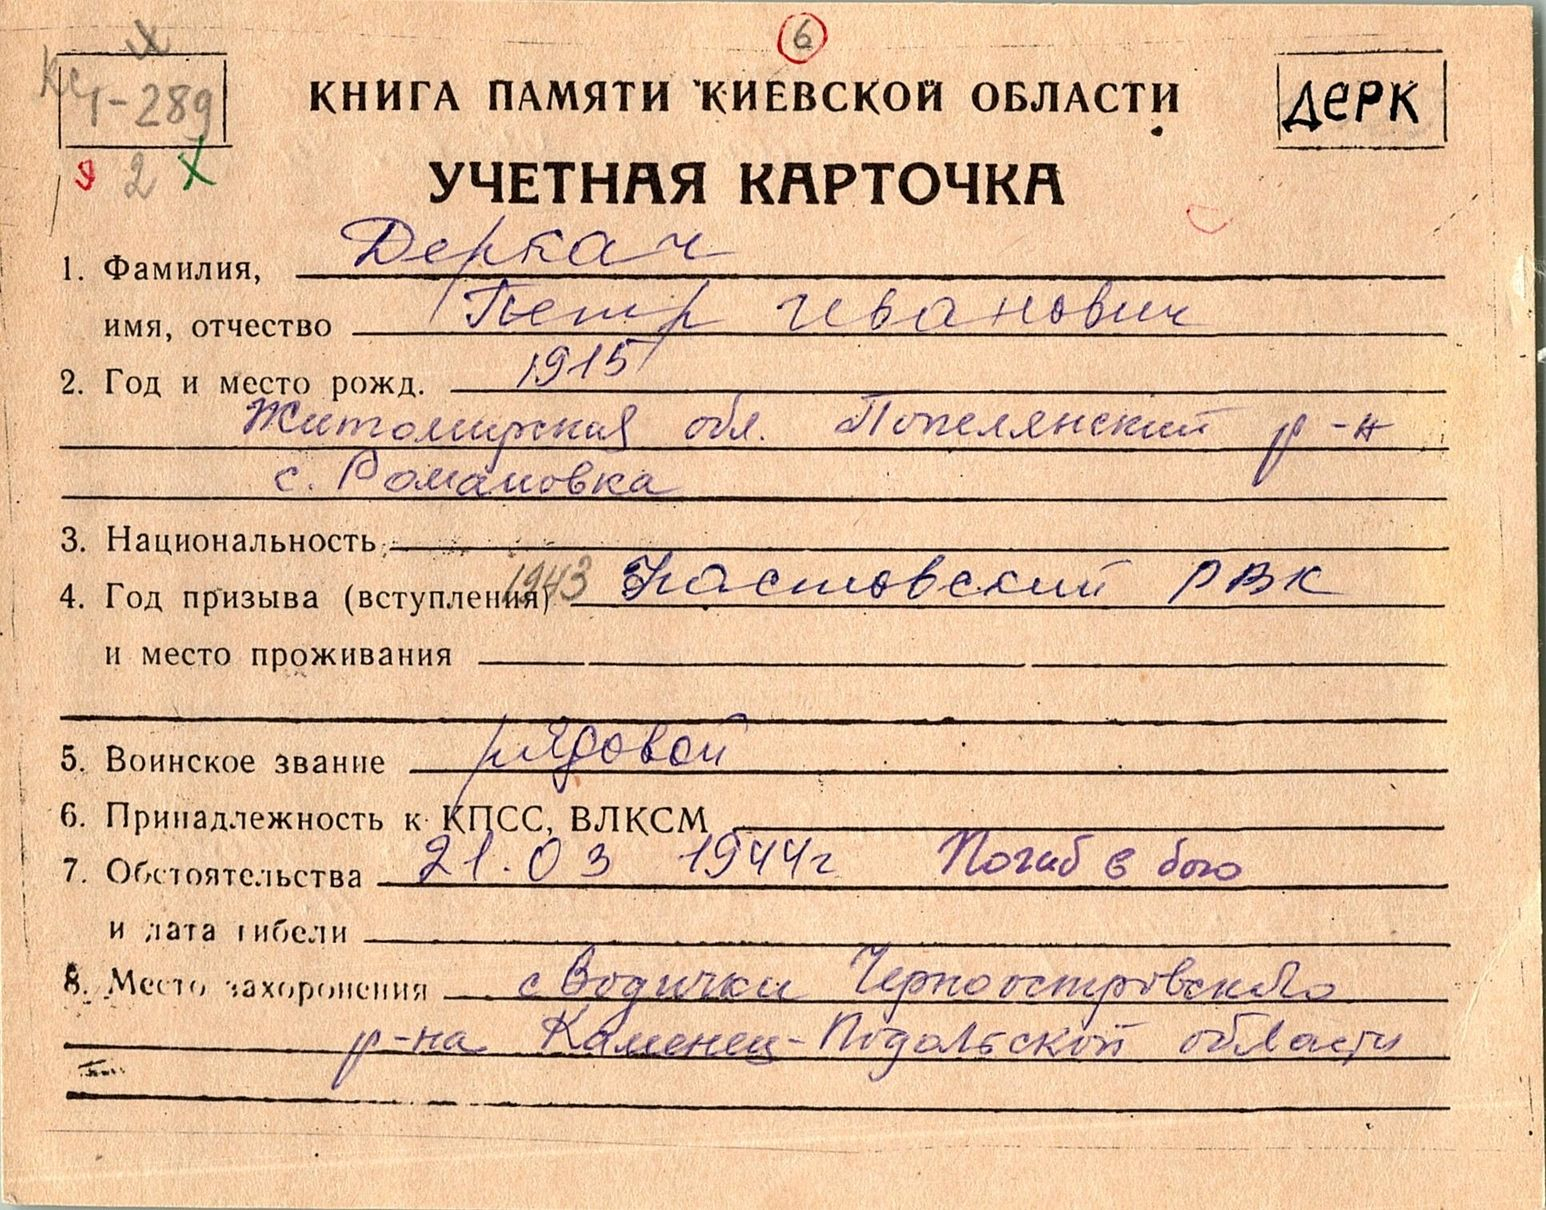 6
1-289
КНИГА ПАМЯТИ КИЕВСКОЙ ОБЛАСТИ
ДЕРК
2
УЧЕТНАЯ КАРТОЧКА
1. Фамилия, Деркач
имя, отчество Петр Иванович
2. Год и место рожд. 1915
Житомирская обл. Попелянский р-н
с. Романовка
3. Национальность
4. Год призыва (вступления) 1943 Фастовский РВК
и место проживания
5. Воинское звание рядовой
6. Принадлежность к КПСС, ВЛКСМ
7. Обстоятельства 21.03 1944г Погиб в бою
и дата гибели
8. Место захоронения с Водички Черноостровского
р-на Каменец-Подольской области